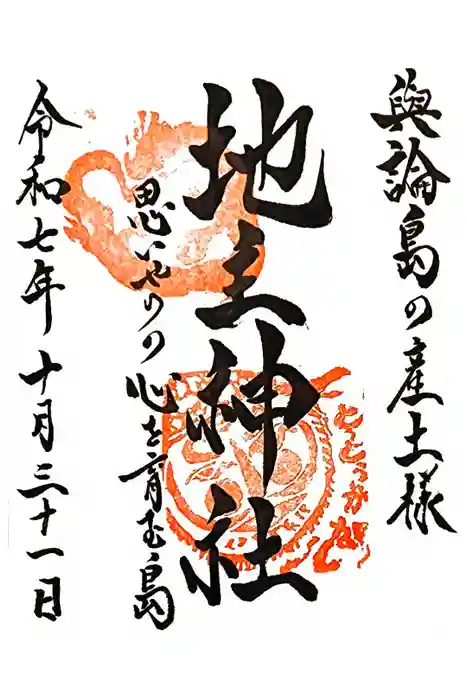 與論島の産土様
地主神社
思いやりの心を育む島
令和七年十月三十一日
とぅとぅがなし